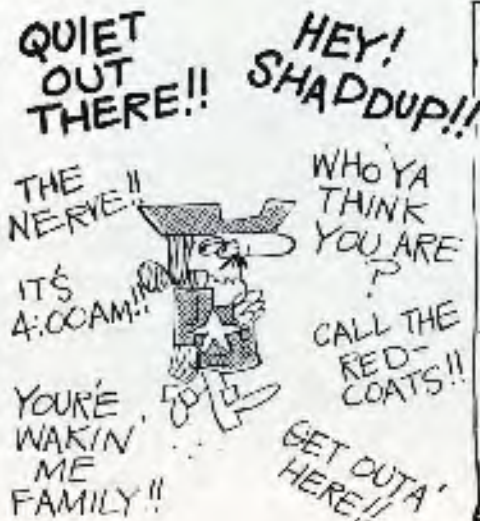 QUIET
OUT
THERE!!
HEY!
SHADDUP!!
THE
NERVE!!
WHO YA
THINK
YOU ARE
?
IT'S
4:00AM!!
CALL THE
RED-
COATS!!
YOUR'E
WAKIN'
ME
FAMILY!!
GET OUTA'
HERE!!